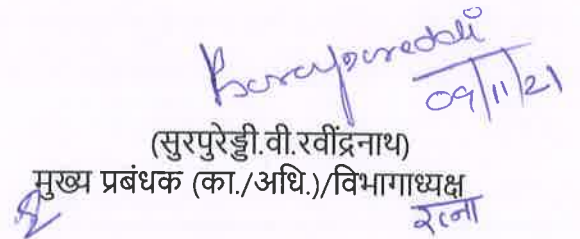 09/11/21
(सुरपुरेड्डी.वी.रवींद्रनाथ)
मुख्य प्रबंधक (का./अधि.)/विभागाध्यक्ष
रत्ना